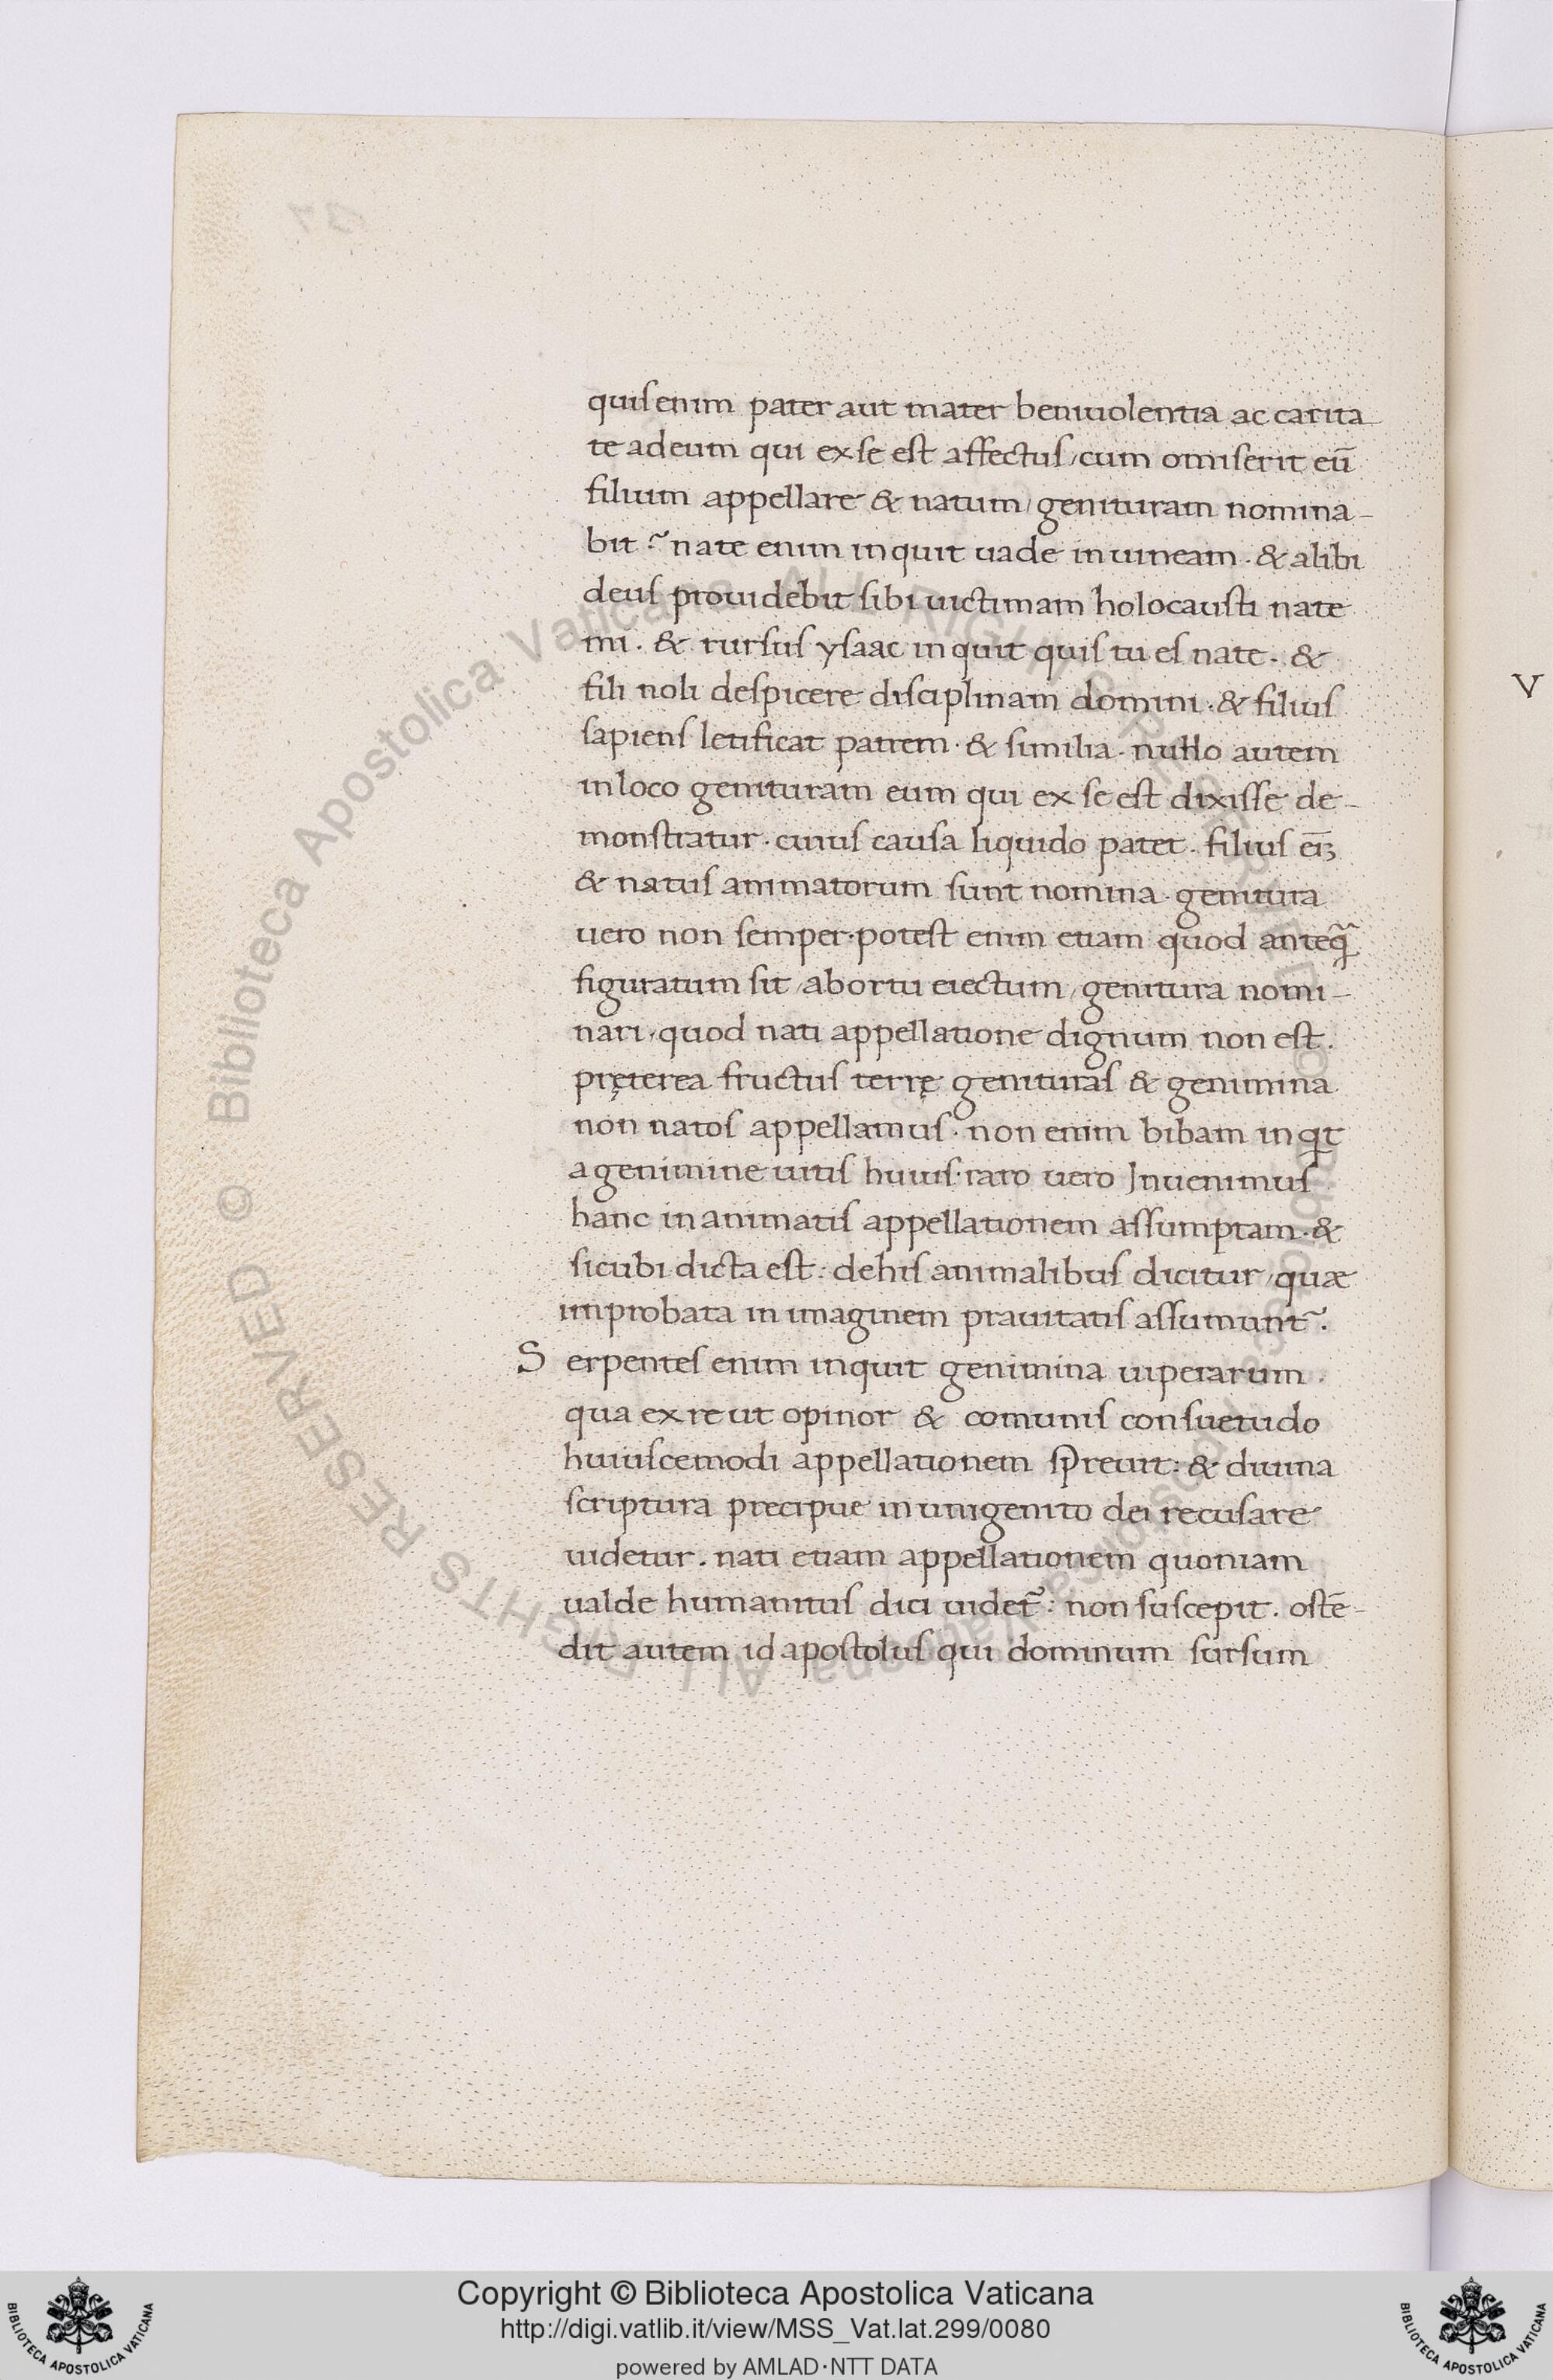 quis enim pater aut mater beniuolentia ac carita
te ad eum qui ex se est affectus, cum omiserit eū
filium appellare & natum, genituram nomina-
bit? nate enim inquit uade in uineam. & alibi
deus prouidebit sibi uictimam holocausti nate
mi. & rursus ysaac inquit quis tu es nate. &
fili noli despicere disciplinam domini. & filius
sapiens letificat patrem. & similia. nullo autem
in loco genituram eum qui ex se est dixisse de-
monstratur. cuius causa liquido patet. filius eīꝫ
& natus animatorum sunt nomina. genitura
uero non semper. potest enim etiam quod anteq̃
figuratum sit, abortu eiectum, genitura nomi-
nari, quod nati appellatione dignum non est.
pręterea fructus terrę genituras & genimina
non natos appellamus. non enim bibam inqt
a genimine uitis huius. raro uero Inuenimus
hanc in animatis appellationem assumptam. &
sicubi dicta est: de his animalibus dicitur, quæ
improbata in imaginem prauitatis assumunt᷉.
Serpentes enim inquit genimina uiperarum.
qua ex re ut opinor & comunis consuetudo
huiuscemodi appellationem sp̱reuit: & diuina
scriptura precipue in unigenito dei recusare
uidetur. nati etiam appellationem quoniam
ualde humanitus dici uidet᷉: non suscepit. ostē-
dit autem id apostolus qui dominum sursum
V
© Biblioteca Apostolica Vaticana ALL RIGHTS RESERVED
© Biblioteca Apostolica Vaticana ALL RIGHTS RESERVED
Copyright © Biblioteca Apostolica Vaticana
http://digi.vatlib.it/view/MSS_Vat.lat.299/0080
powered by AMLAD·NTT DATA
BIBLIOTECA APOSTOLICA VATICANA
BIBLIOTECA APOSTOLICA VATICANA